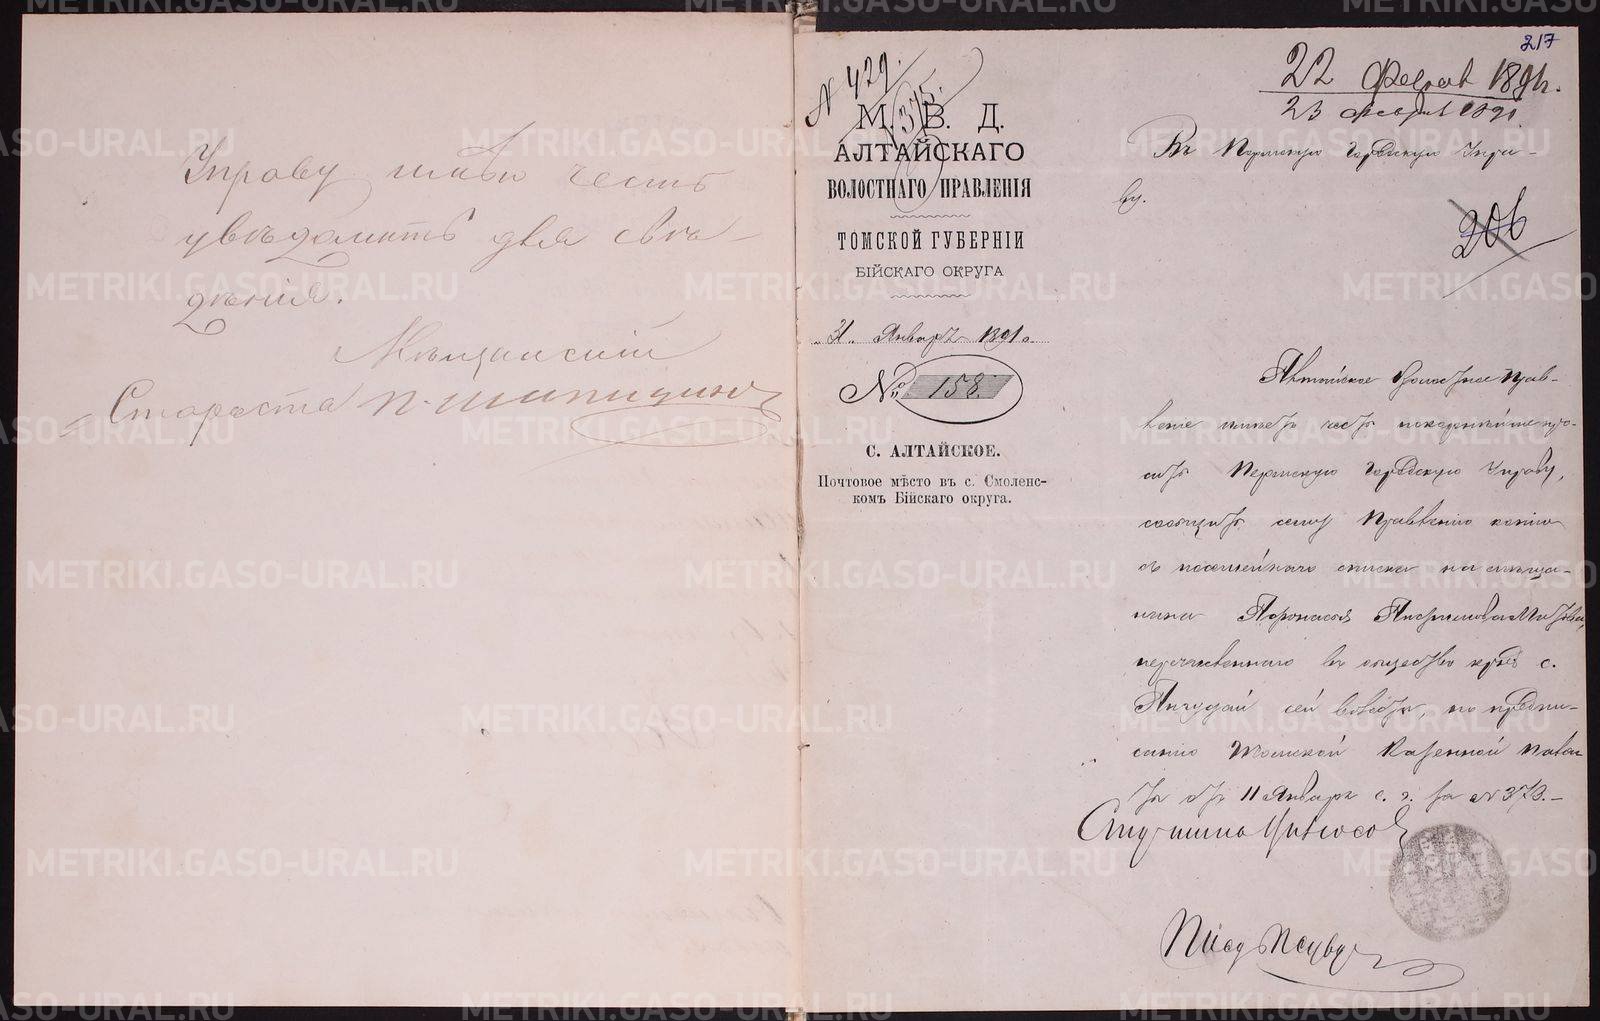 Управу имѣю честь
увѣдомить для свѣ-
дѣнія.
Мѣщанскій
Староста П. Шипицинъ
217
N 429.
375.
М. В. Д.
АЛТАЙСКАГО
ВОЛОСТНАГО ПРАВЛЕНІЯ
ТОМСКОЙ ГУБЕРНІИ
БІЙСКАГО ОКРУГА
„31„ Января 1891 г.
№ 158.
С. АЛТАЙСКОЕ.
Почтовое мѣсто въ с. Смоленс-
комъ Бійскаго округа.
22 Феврал 1891 г.
23 февраля 1891
Въ Пермскую Городскую Упра-
ву.
206
Алтайское Волостное Прав-
леніе имѣетъ честь покорнѣйше про-
сить Пермскую Городскую Управу,
сообщить сему Правленію копію
съ посемейнаго списка на мѣща-
нина Афонасья
перечисленнаго въ общество кр. с.
Ангудай сей волости, по предпи-
санію Томской Казенной Пала-
ты отъ 11 Января с. г. за № 373.-
METRIKI.GASO-URAL.RU